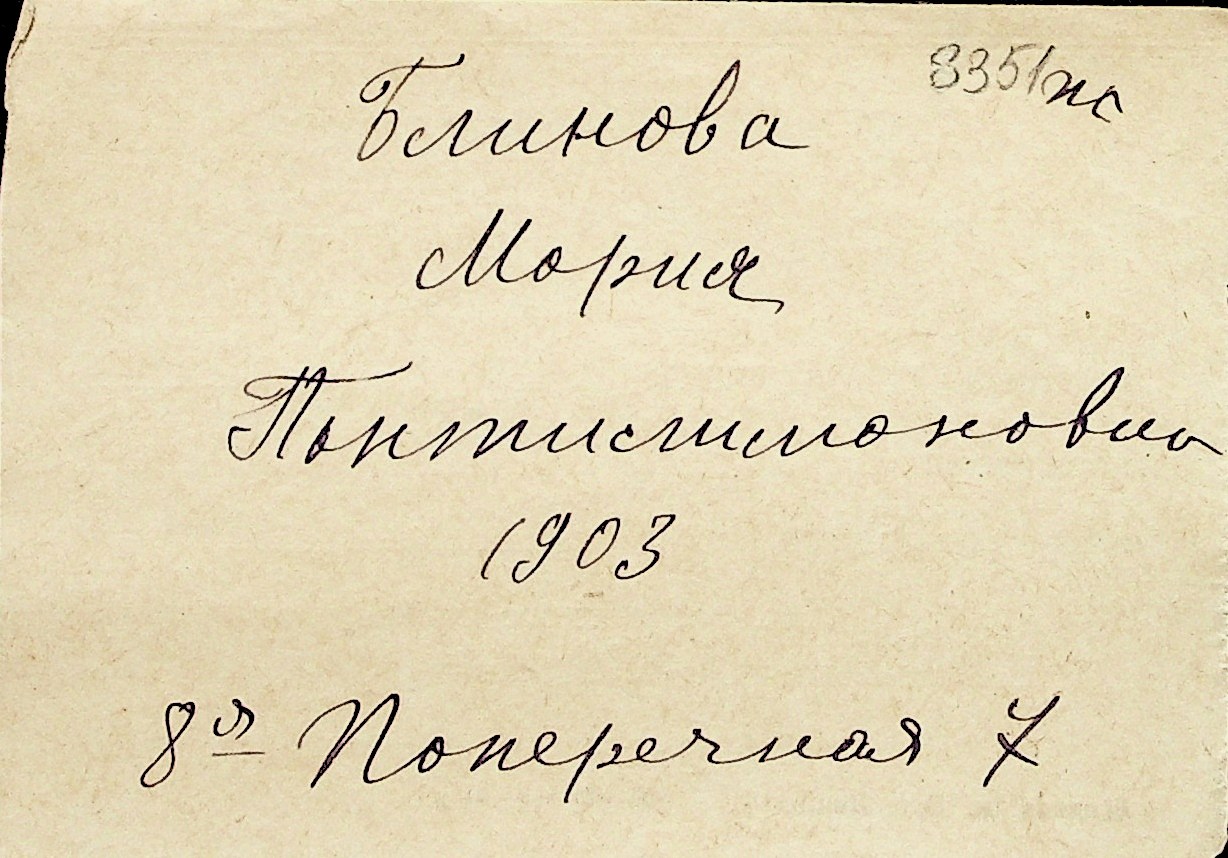 8351 пс
Блинова
Мария
Пантилимоновна
1903
8я Поперечная 7